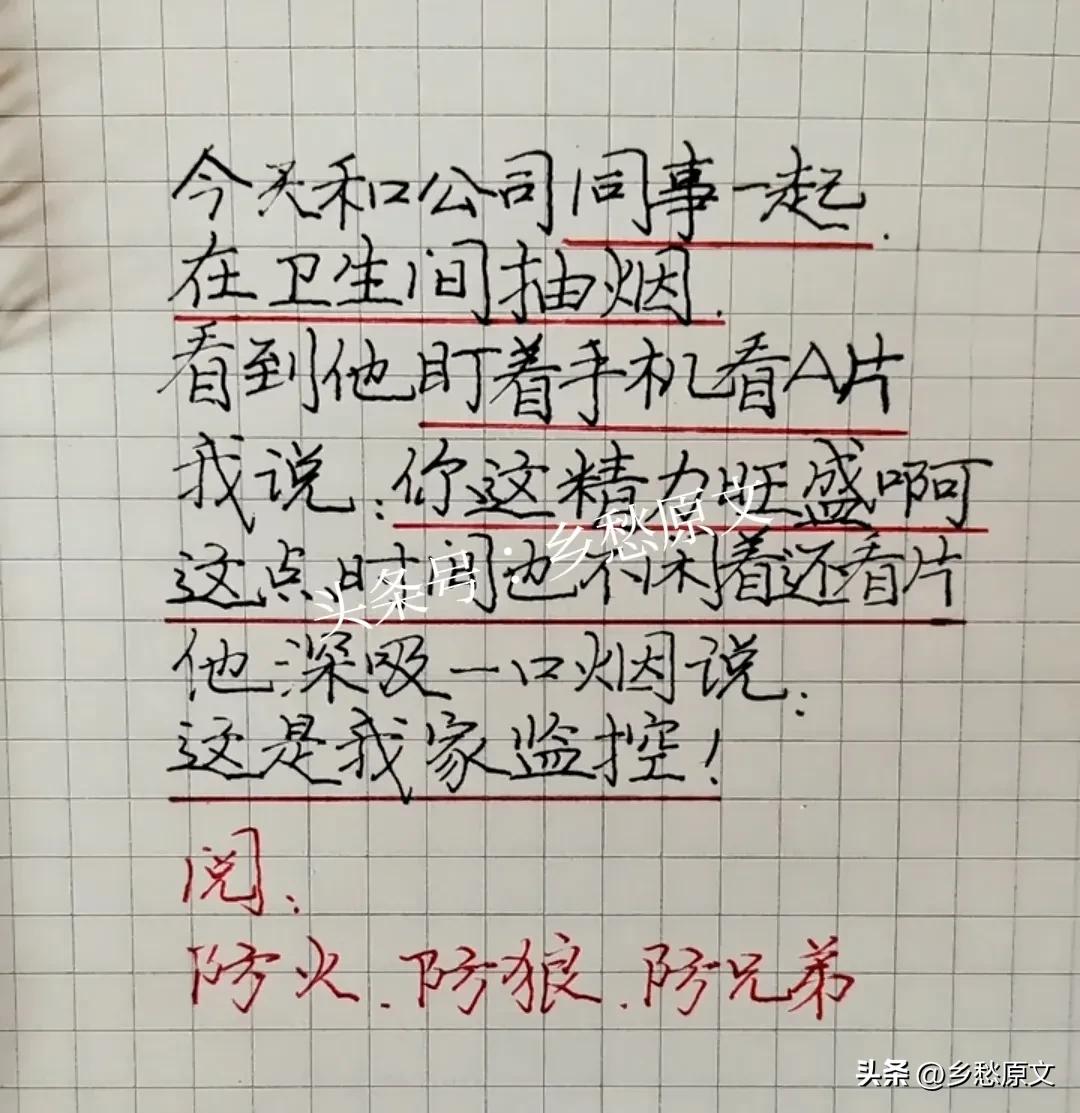 今天和公司同事一起.
在卫生间抽烟.
看到他盯着手机看A片
我说:你这精力旺盛啊
这点时间也不闲着还看片
他深吸一口烟说:
这是我家监控!
阅:
防火.防狼.防兄弟
头条号:乡愁原文
头条 @乡愁原文